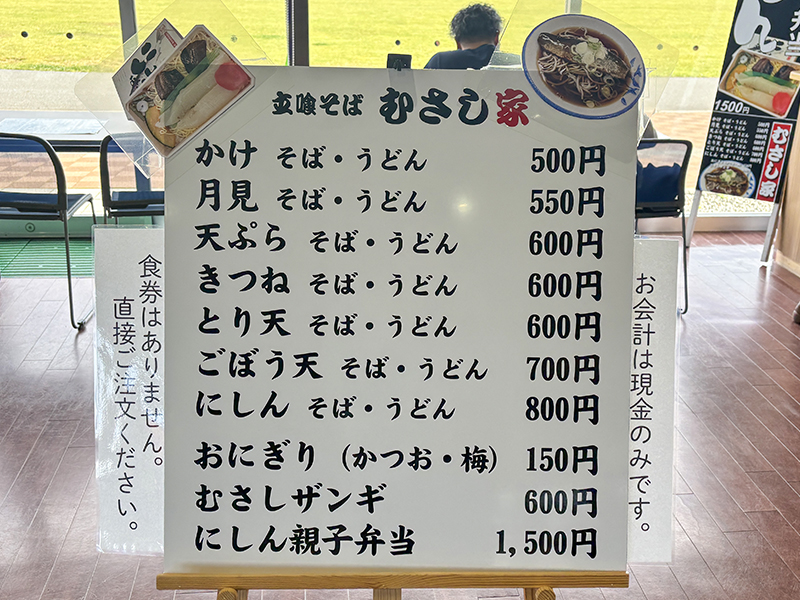 立喰そば むさし家
かけ そば・うどん 500円
月見 そば・うどん 550円
天ぷら そば・うどん 600円
きつね そば・うどん 600円
とり天 そば・うどん 600円
ごぼう天 そば・うどん 700円
にしん そば・うどん 800円
おにぎり（かつお・梅） 150円
むさしザンギ 600円
にしん親子弁当 1,500円
食券はありません。
直接ご注文ください。
お会計は現金のみです。
1500円
むさし家